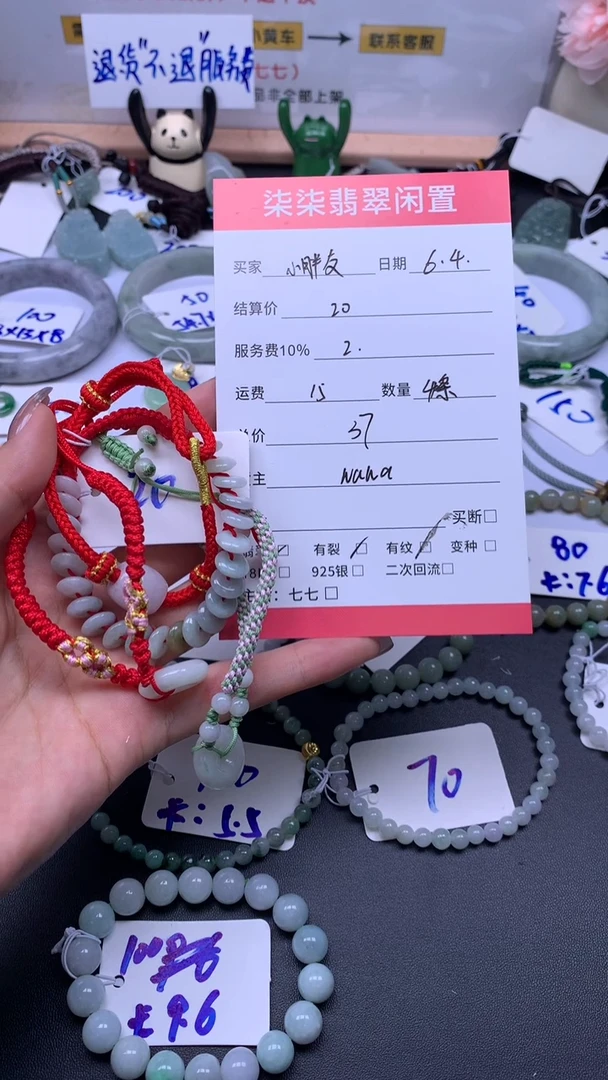 小黄车 联系客服
退货"不退"服务费
七七）
品非全部上架
柒柒翡翠闲置
买家 小胖友 日期 6.4.
结算价 20
服务费10% 2.
运费 15 数量 4条
价 37
主 nana
买断
有裂 有纹 变种
925银 二次回流
七七
20
100
150
80
卡:7.6
70
卡:5.5
100
卡9.6